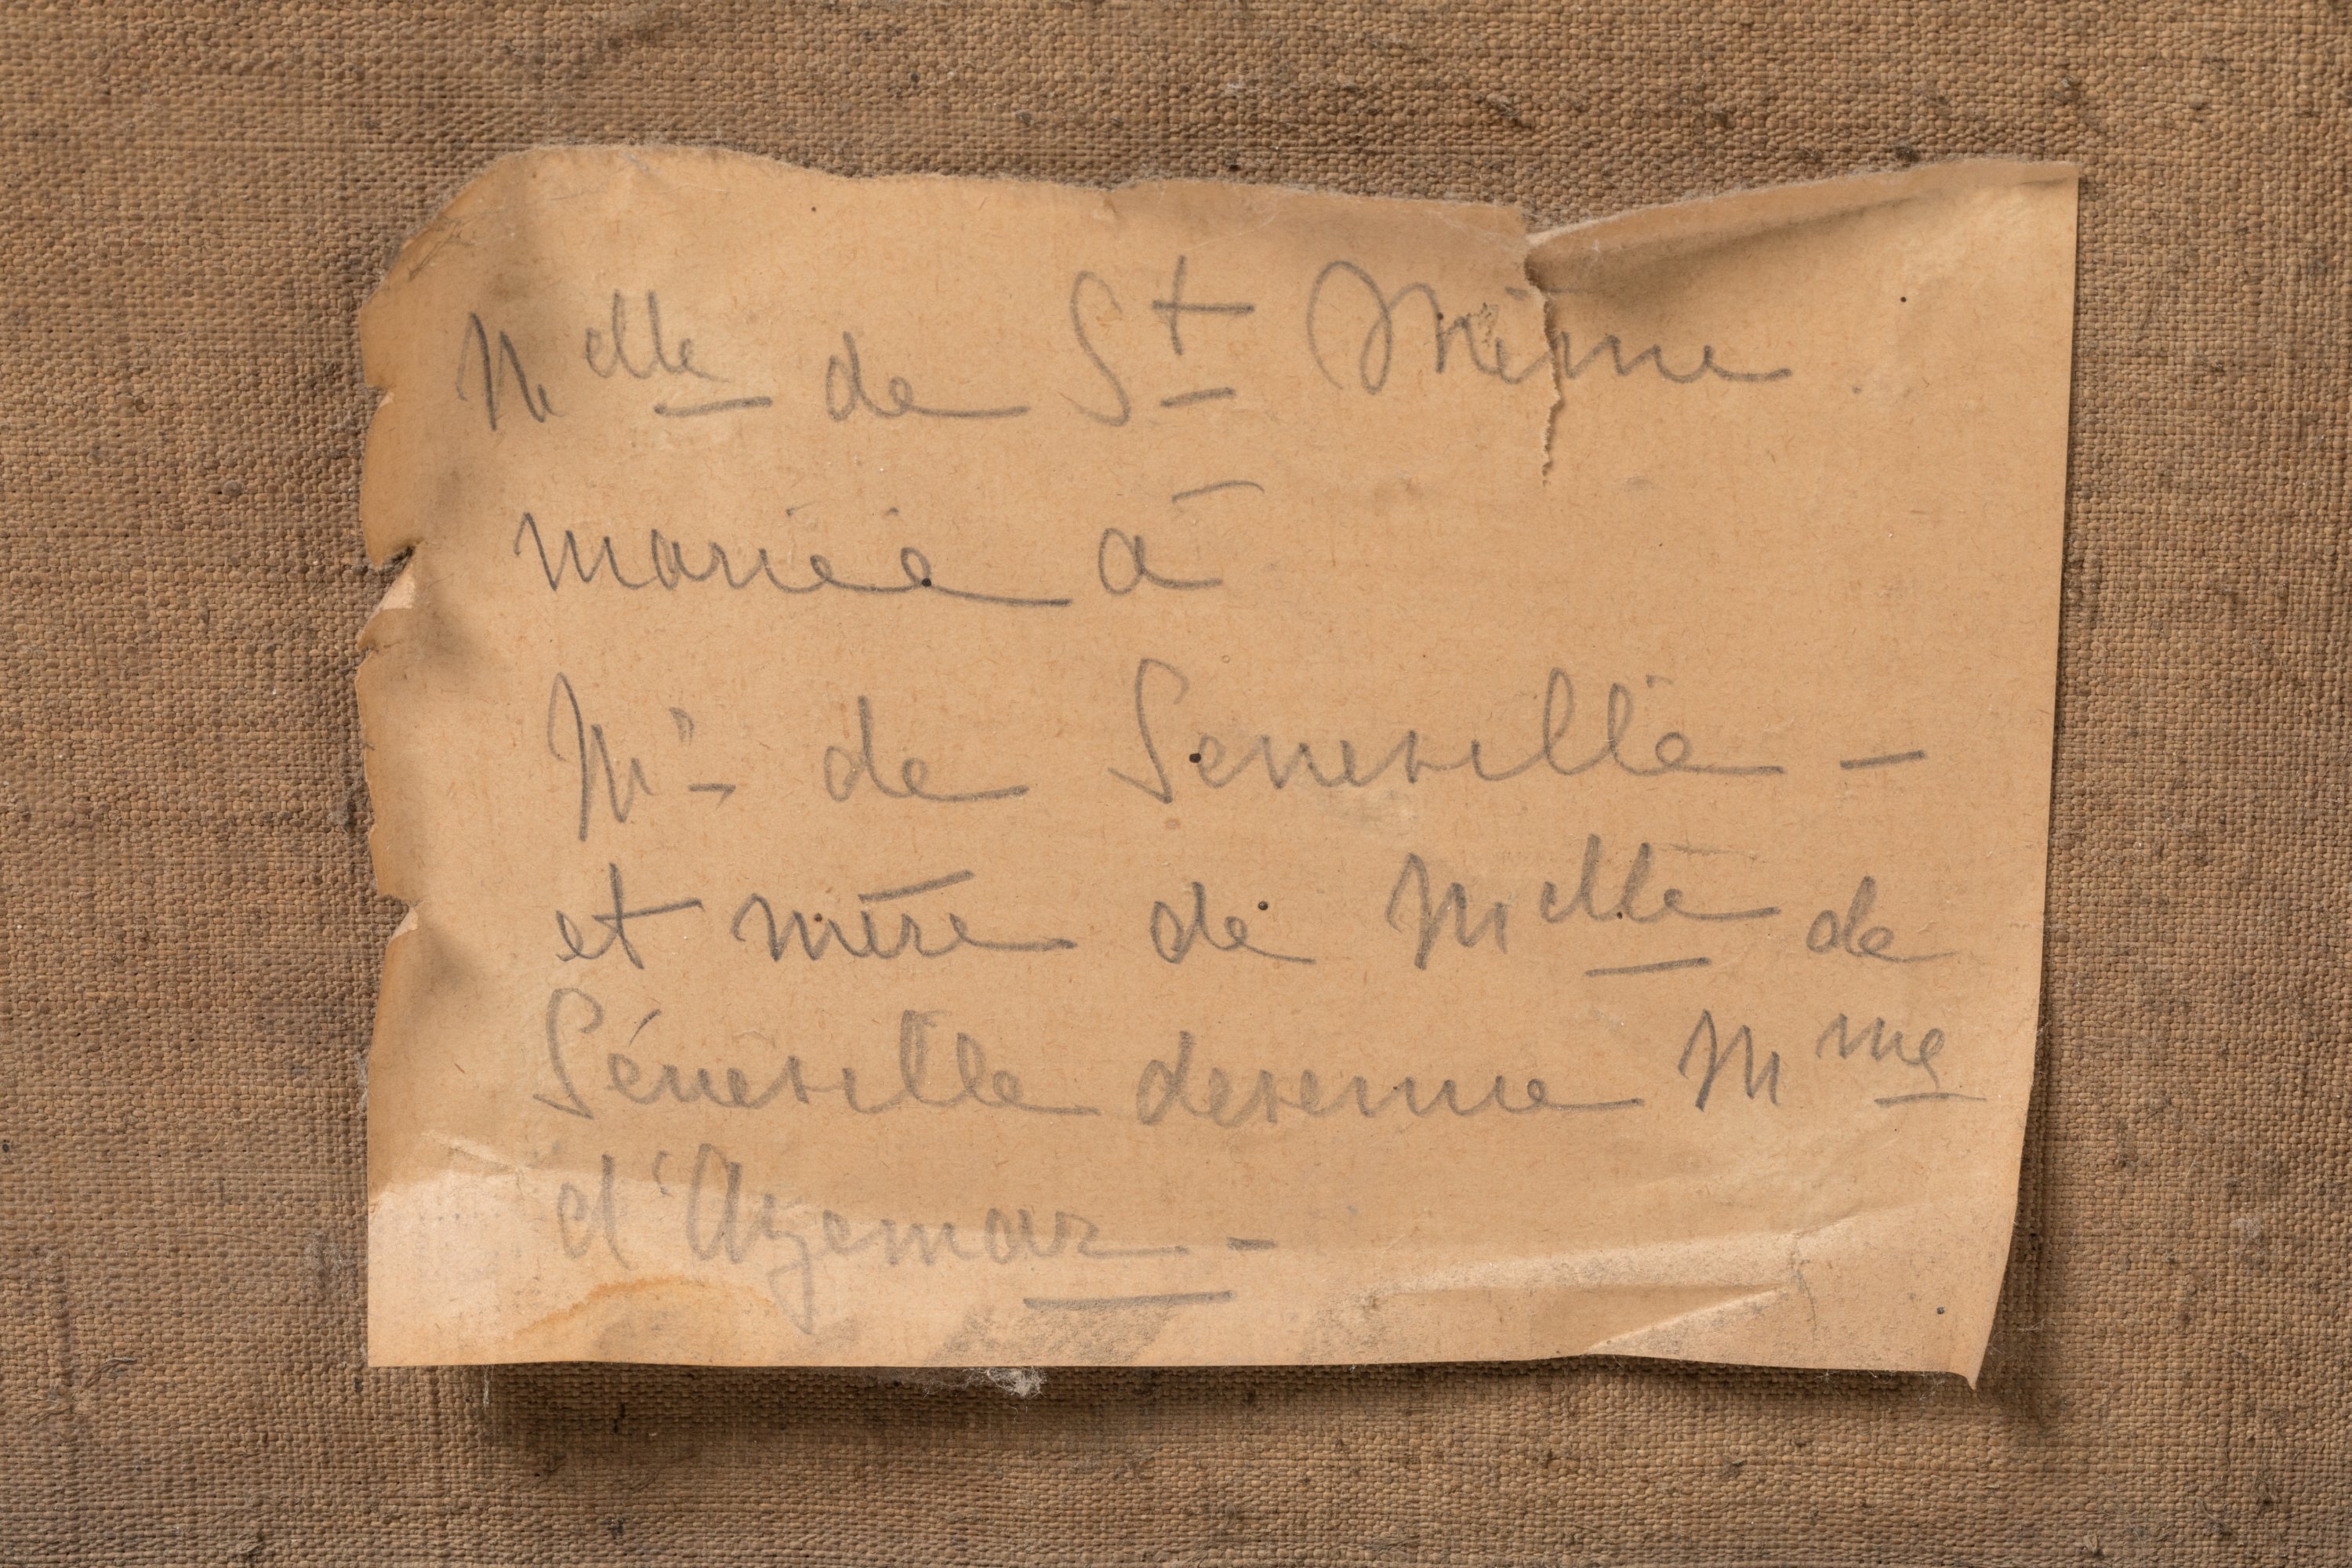 Melle de St Même
mariée à
Mr de Seneville -
et mère de Melle de
Séneville devenue Mme
d'Azemar -